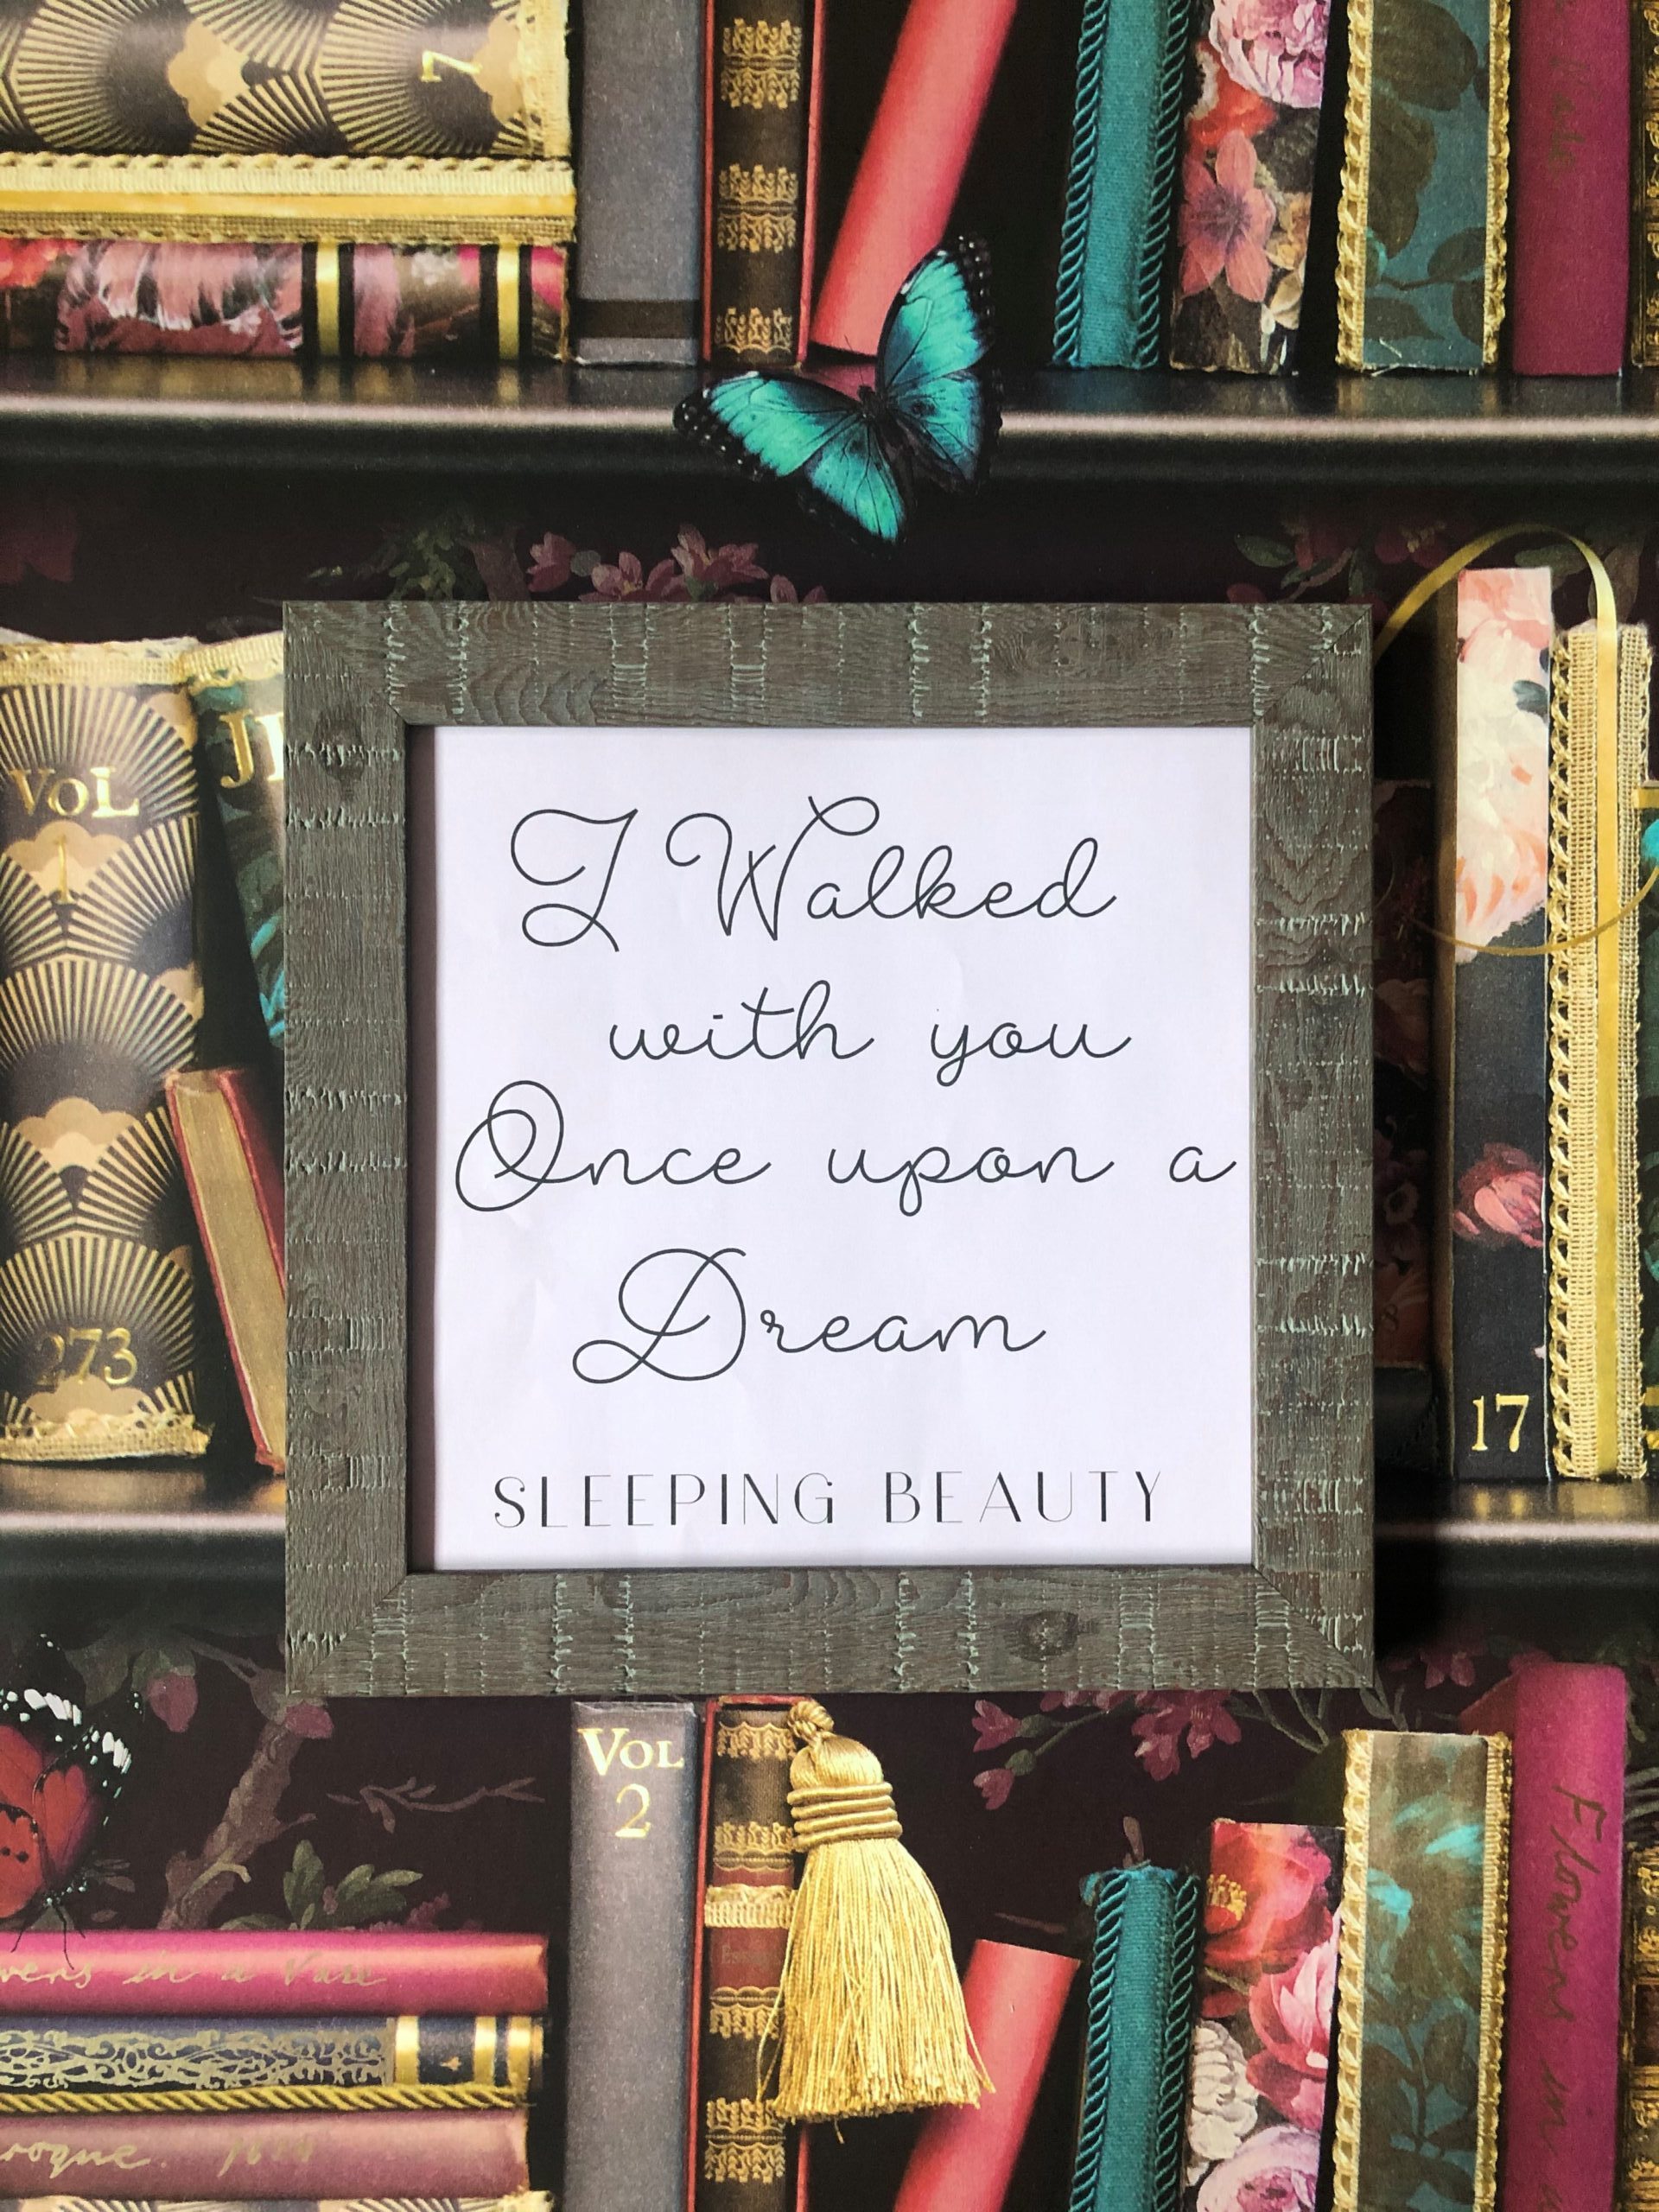 7
VOL
1
273
I Walked
with you
Once upon a
Dream
SLEEPING BEAUTY
17
VOL
2
in a Vase
Flowers in